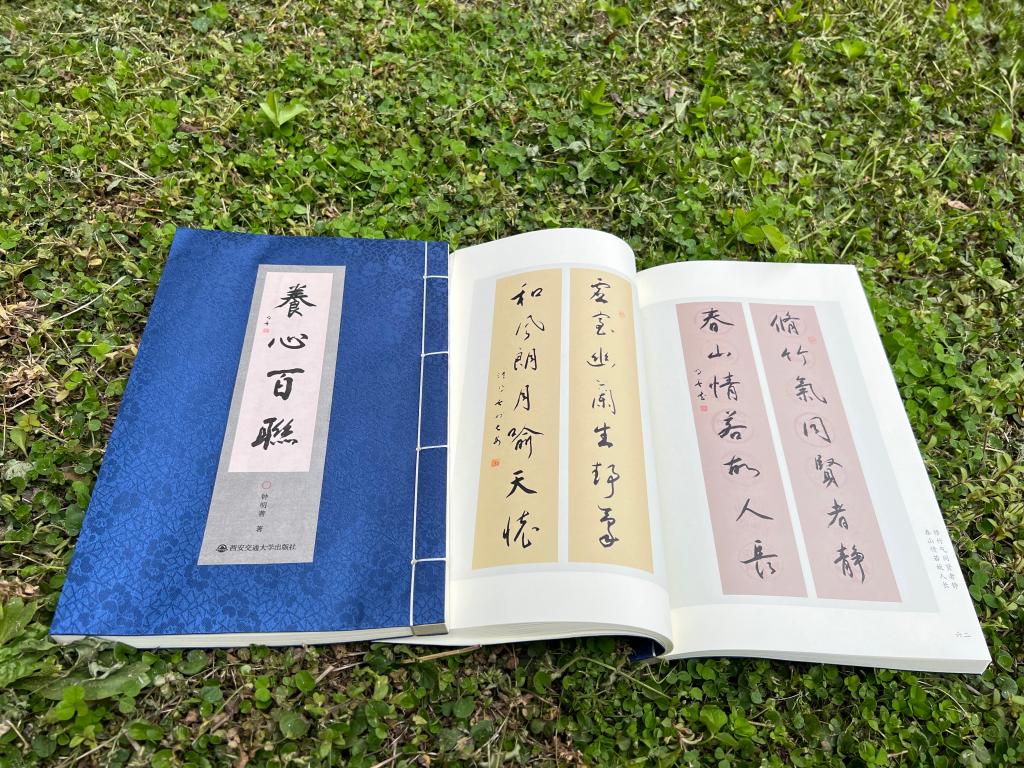 養心百聯
钟明善 著
西安交通大学出版社
虚室幽蘭生静氣
和風朗月喻天懷
脩竹氣同賢者静
春山情若故人長
修竹气同贤者静
春山情若故人长
六二